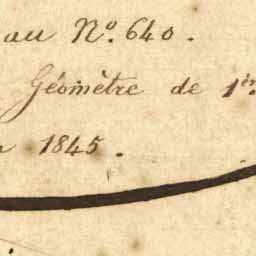 au Nº. 640.
Géomètre de 1èr
1845.